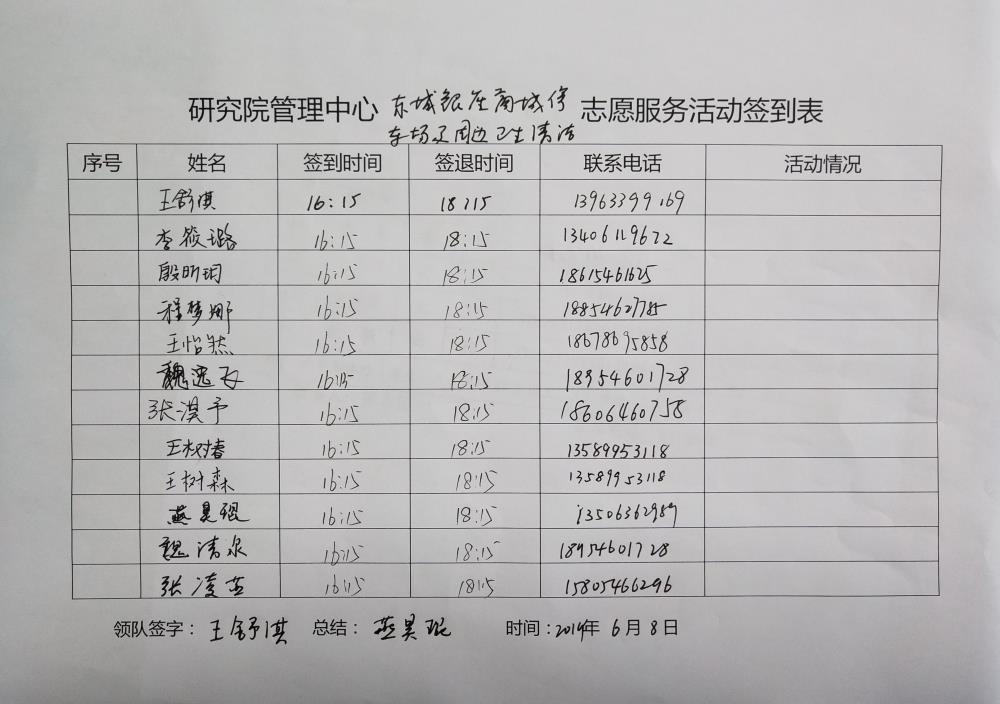 研究院管理中心 东城银座商城停 志愿服务活动签到表
车场及周边卫生清洁
序号 姓名 签到时间 签退时间 联系电话 活动情况
王舒淇 16:15 18:15 13963399169
李筱璐 16:15 18:15 13406119672
殷昕玥 16:15 18:15 18615461625
程梦娜 16:15 18:15 18854627785
王怡然 16:15 18:15 18678695858
魏逸飞 16:15 18:15 18954601728
张淏予 16:15 18:15 18606460758
王树春 16:15 18:15 13589953118
王树森 16:15 18:15 13589953118
燕昊琨 16:15 18:15 13506362989
魏清泉 16:15 18:15 18954601728
张凌 16:15 18:15 15805466296
领队签字: 王舒淇 总结: 燕昊琨 时间:2019年 6月8日